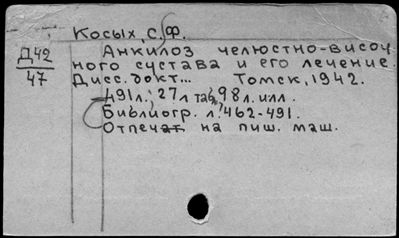 Косых, С.Ф.
Д42
47
Анкилоз челюстно-височ
ного сустава и его лечение.
Дисс. докт... Томск, 1942.
491 л.; 27 л таб., 98 л. илл.
Библиогр. л. 462-491.
Отпечат на пиш. маш.